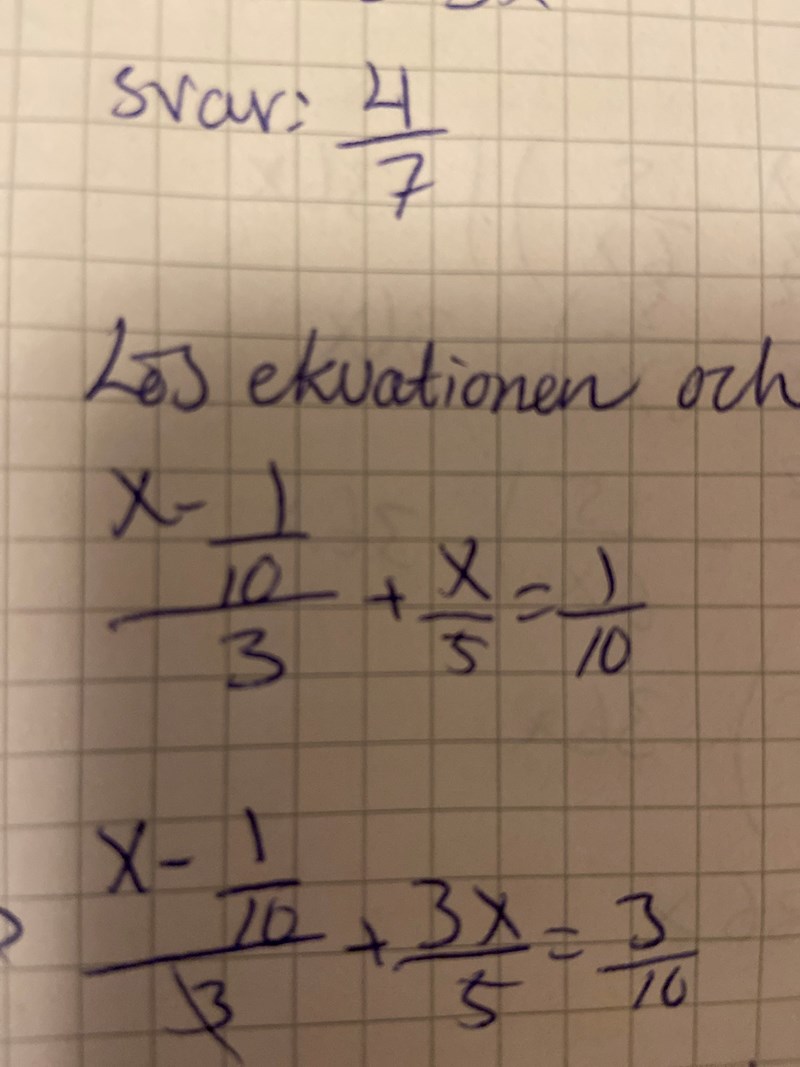 svar: 4/7
Lös ekvationen och
(x - 1/10)/3 + x/5 = 1/10
(x - 1/10)/3 + 3x/5 = 3/10